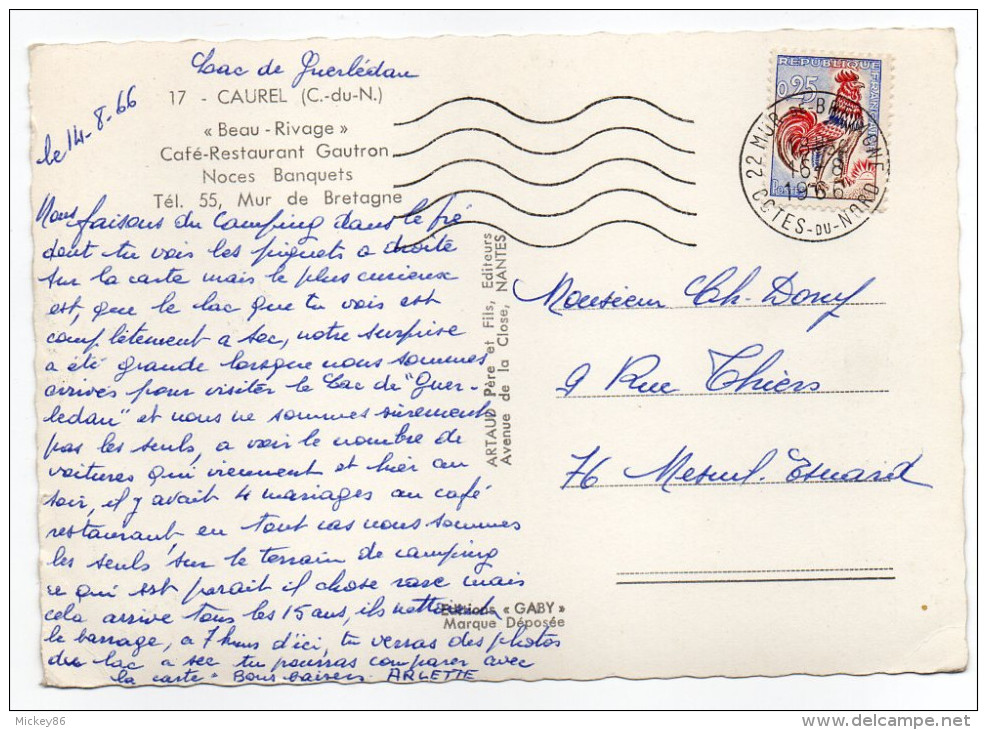 Lac de Guerlédan
17 - CAUREL (C.-du-N.)
le 14-8-66
« Beau-Rivage »
Café-Restaurant Gautron
Noces Banquets
Tél. 55, Mur de Bretagne
Nous faisons du camping dans le pré
dont tu vois les piquets a droite
sur la carte mais le plus curieux
est, que le lac que tu vois est
complètement a sec, notre surprise
a été grande lorsque nous sommes
arrivés pour visiter le Lac de "Guer-
ledan" et nous ne sommes sûrement
pas les seuls, a voir le nombre de
voitures qui viennent et hier au
soir, il y avait 4 mariages au café
restaurant, en tout cas nous sommes
les seuls sur le terrain de camping
ce qui est parait il chose rare mais
cela arrive tous les 15 ans, ils nettoient
le barrage, a 7 kms d'ici, tu verras des photos
du lac a sec tu pourras comparer avec
la carte. Bons baisers ARLETTE
ARTAUD Père et Fils, Editeurs
Avenue de la Close, NANTES
Editions « GABY »
Marque Déposée
RÉPUBLIQUE FRANÇAISE
0,25
22 MUR-DE-BRETAGNE
16-8
1966
COTES-DU-NORD
Monsieur Ch. Douy
9 Rue Thiers
76 Mesnil-Esnard
Mickey86
www.delcampe.net